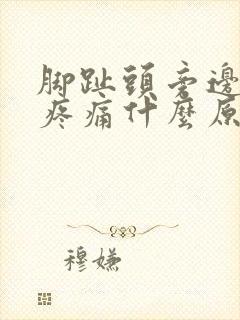 腳趾頭旁邊
疼痛什麼原
穆嫌